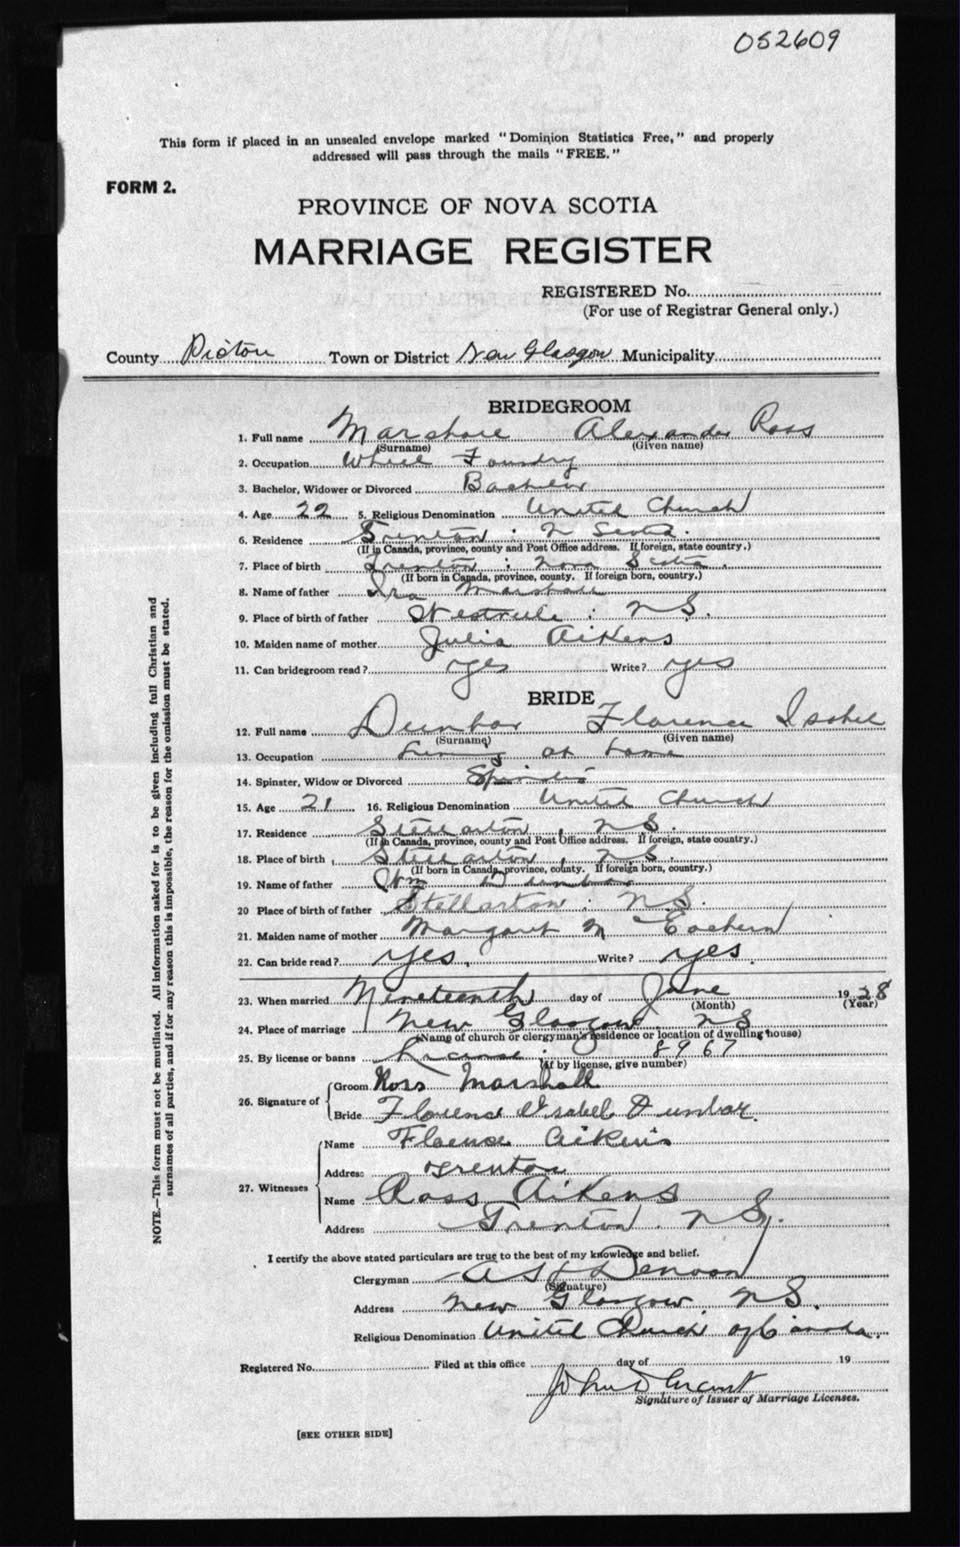 052609
This form if placed in an unsealed envelope marked "Dominion Statistics Free," and properly
addressed will pass through the mails "FREE."
FORM 2.
PROVINCE OF NOVA SCOTIA
MARRIAGE REGISTER
REGISTERED No.
(For use of Registrar General only.)
County Pictou Town or District New Glasgow Municipality
BRIDEGROOM
1. Full name Marshall Alexander Ross
(Surname) (Given name)
2. Occupation Foundry
3. Bachelor, Widower or Divorced Bachelor
4. Age 22 5. Religious Denomination United Church
6. Residence Trenton : N Scotia.
(If in Canada, province, county and Post Office address. If foreign, state country.)
7. Place of birth Trenton : Nova Scotia.
(If born in Canada, province, county. If foreign born, country.)
8. Name of father Ira Marshall
9. Place of birth of father : N S.
10. Maiden name of mother Julia Aikens
11. Can bridegroom read? yes Write? yes
BRIDE
12. Full name Dunbar Florence Isabel
(Surname) (Given name)
13. Occupation Living at home
14. Spinster, Widow or Divorced Spinster
15. Age 21 16. Religious Denomination United Church
17. Residence Stellarton, N S.
(If in Canada, province, county and Post Office address. If foreign, state country.)
18. Place of birth Stellarton, N S.
(If born in Canada, province, county. If foreign born, country.)
19. Name of father Wm Dunbar
20 Place of birth of father Stellarton : N.S.
21. Maiden name of mother Margaret M
22. Can bride read? yes, Write? yes.
23. When married Nineteenth day of June 1928
(Month) (Year)
24. Place of marriage New Glasgow N S
(Name of church or clergyman's residence or location of dwelling house)
25. By license or banns License : 8967
(If by license, give number)
26. Signature of Groom Ross Marshall
Bride Florence Isabel Dunbar
27. Witnesses
Name Florence Aikens
Address Trenton
Name Ross Aikens
Address Trenton. N S.
I certify the above stated particulars are true to the best of my knowledge and belief.
Clergyman
(Signature)
Address New Glasgow, N S.
Religious Denomination United Church of Canada.
Registered No. Filed at this office day of 19
John D Grant
Signature of Issuer of Marriage Licenses.
[SEE OTHER SIDE]
NOTE.—This form must not be mutilated. All information asked for is to be given including full Christian and
surnames of all parties, and if for any reason this is impossible, the reason for the omission must be stated.